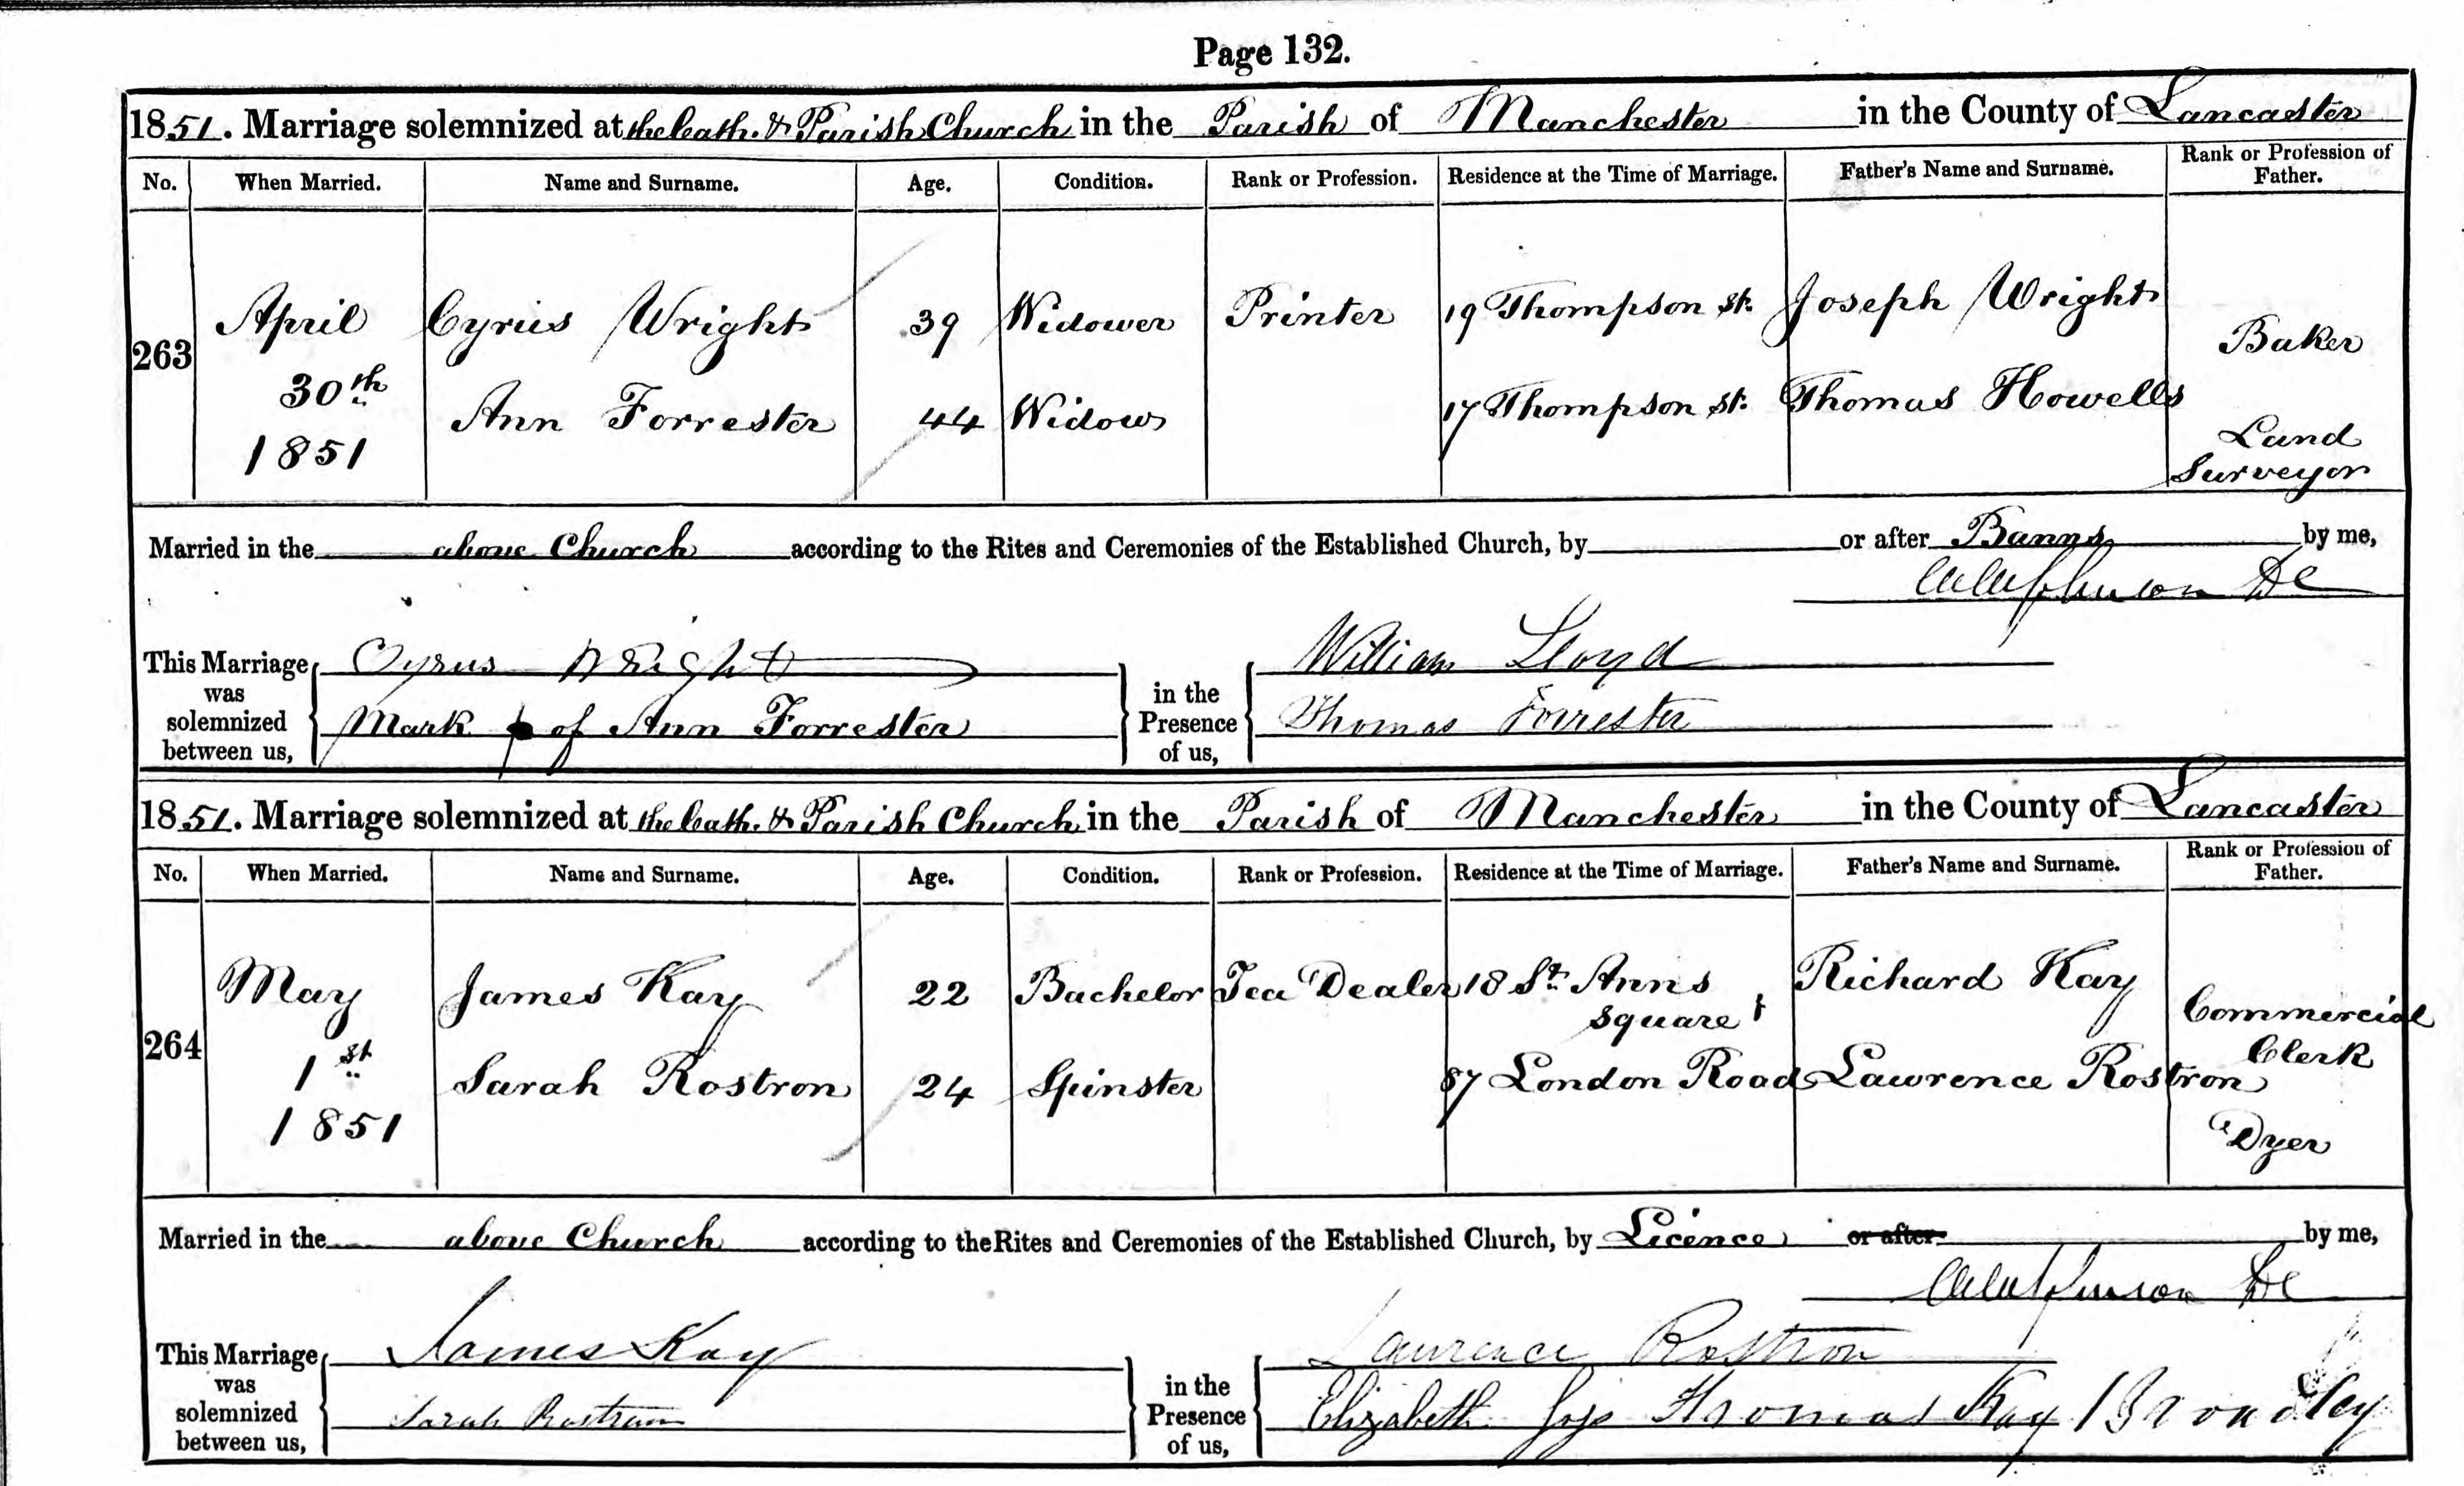 Page 132.
1851. Marriage solemnized at the Cath. & Parish Church in the Parish of Manchester in the County of Lancaster
No. When Married. Name and Surname. Age. Condition. Rank or Profession. Residence at the Time of Marriage. Father's Name and Surname. Rank or Profession of Father.
263 April 30th 1851 Cyrius Wright 39 Widower Printer 19 Thompson St. Joseph Wright Baker
Ann Forrester 44 Widow 17 Thompson St. Thomas Howells Land Surveyor
Married in the above Church according to the Rites and Ceremonies of the Established Church, by or after Banns by me,
This Marriage was solemnized between us, Cyrus Wright in the Presence of us, William Lloyd
Mark of Ann Forrester Thomas Forrester
1851. Marriage solemnized at the Cath. & Parish Church in the Parish of Manchester in the County of Lancaster
No. When Married. Name and Surname. Age. Condition. Rank or Profession. Residence at the Time of Marriage. Father's Name and Surname. Rank or Profession of Father.
264 May 1st 1851 James Kay 22 Bachelor Tea Dealer 18 St. Anns Square Richard Kay Commercial Clerk
Sarah Rostron 24 Spinster 87 London Road Lawrence Rostron Dyer
Married in the above Church according to the Rites and Ceremonies of the Established Church, by Licence or after by me,
This Marriage was solemnized between us, James Kay in the Presence of us, Lawrence Rostron
Sarah Rostron Elizabeth Thomas Kay